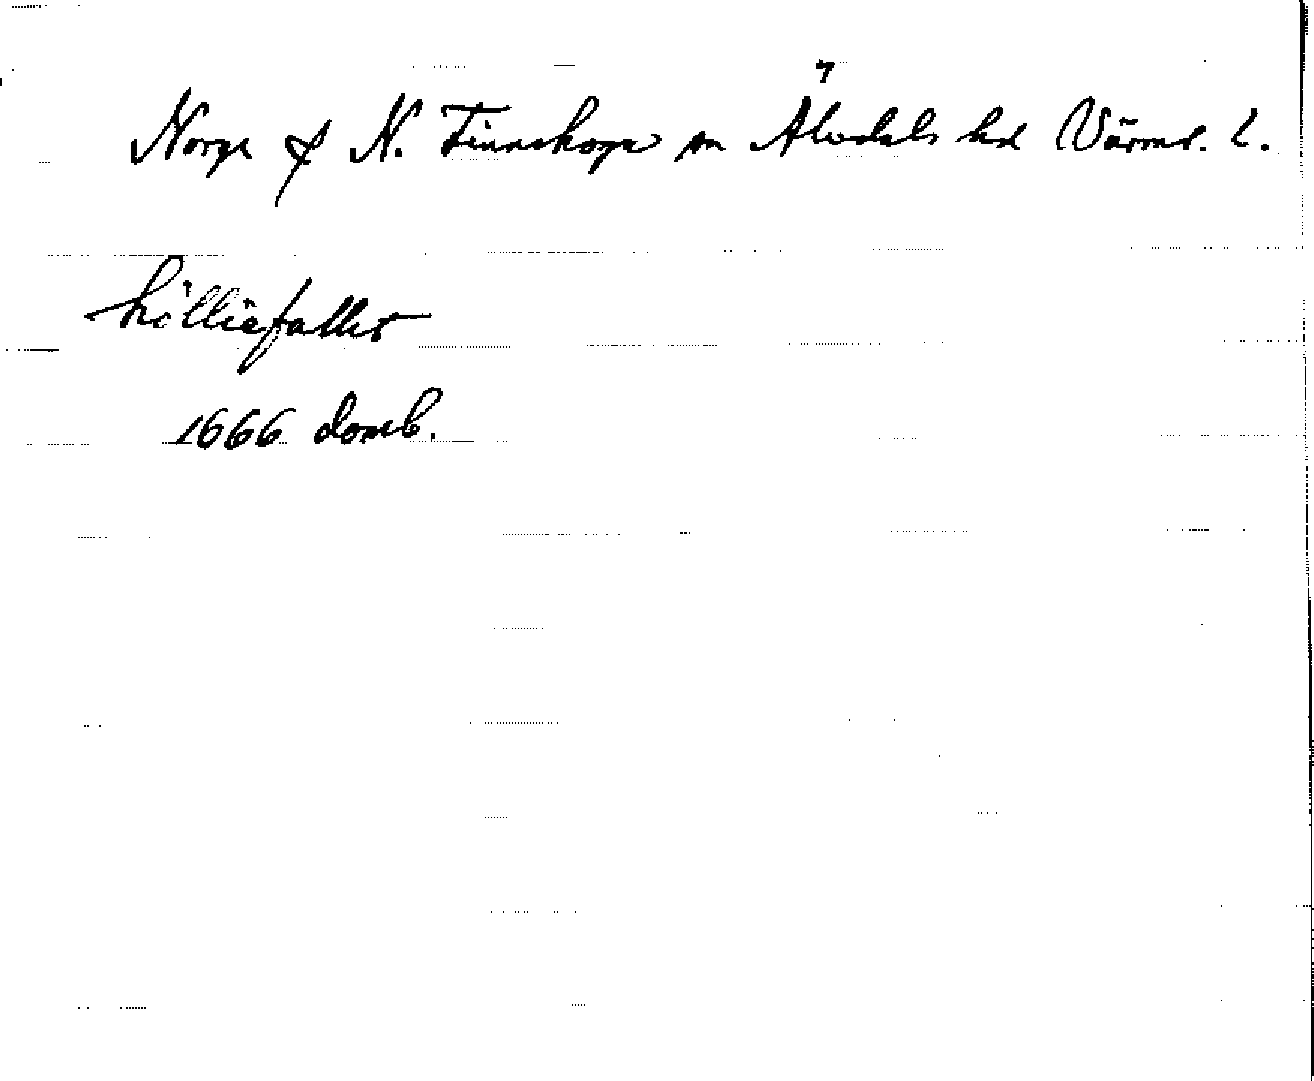 Norge f N. Finnskoga sn Älvdals hd Värml. l.
hölliefallet
1666 domb.